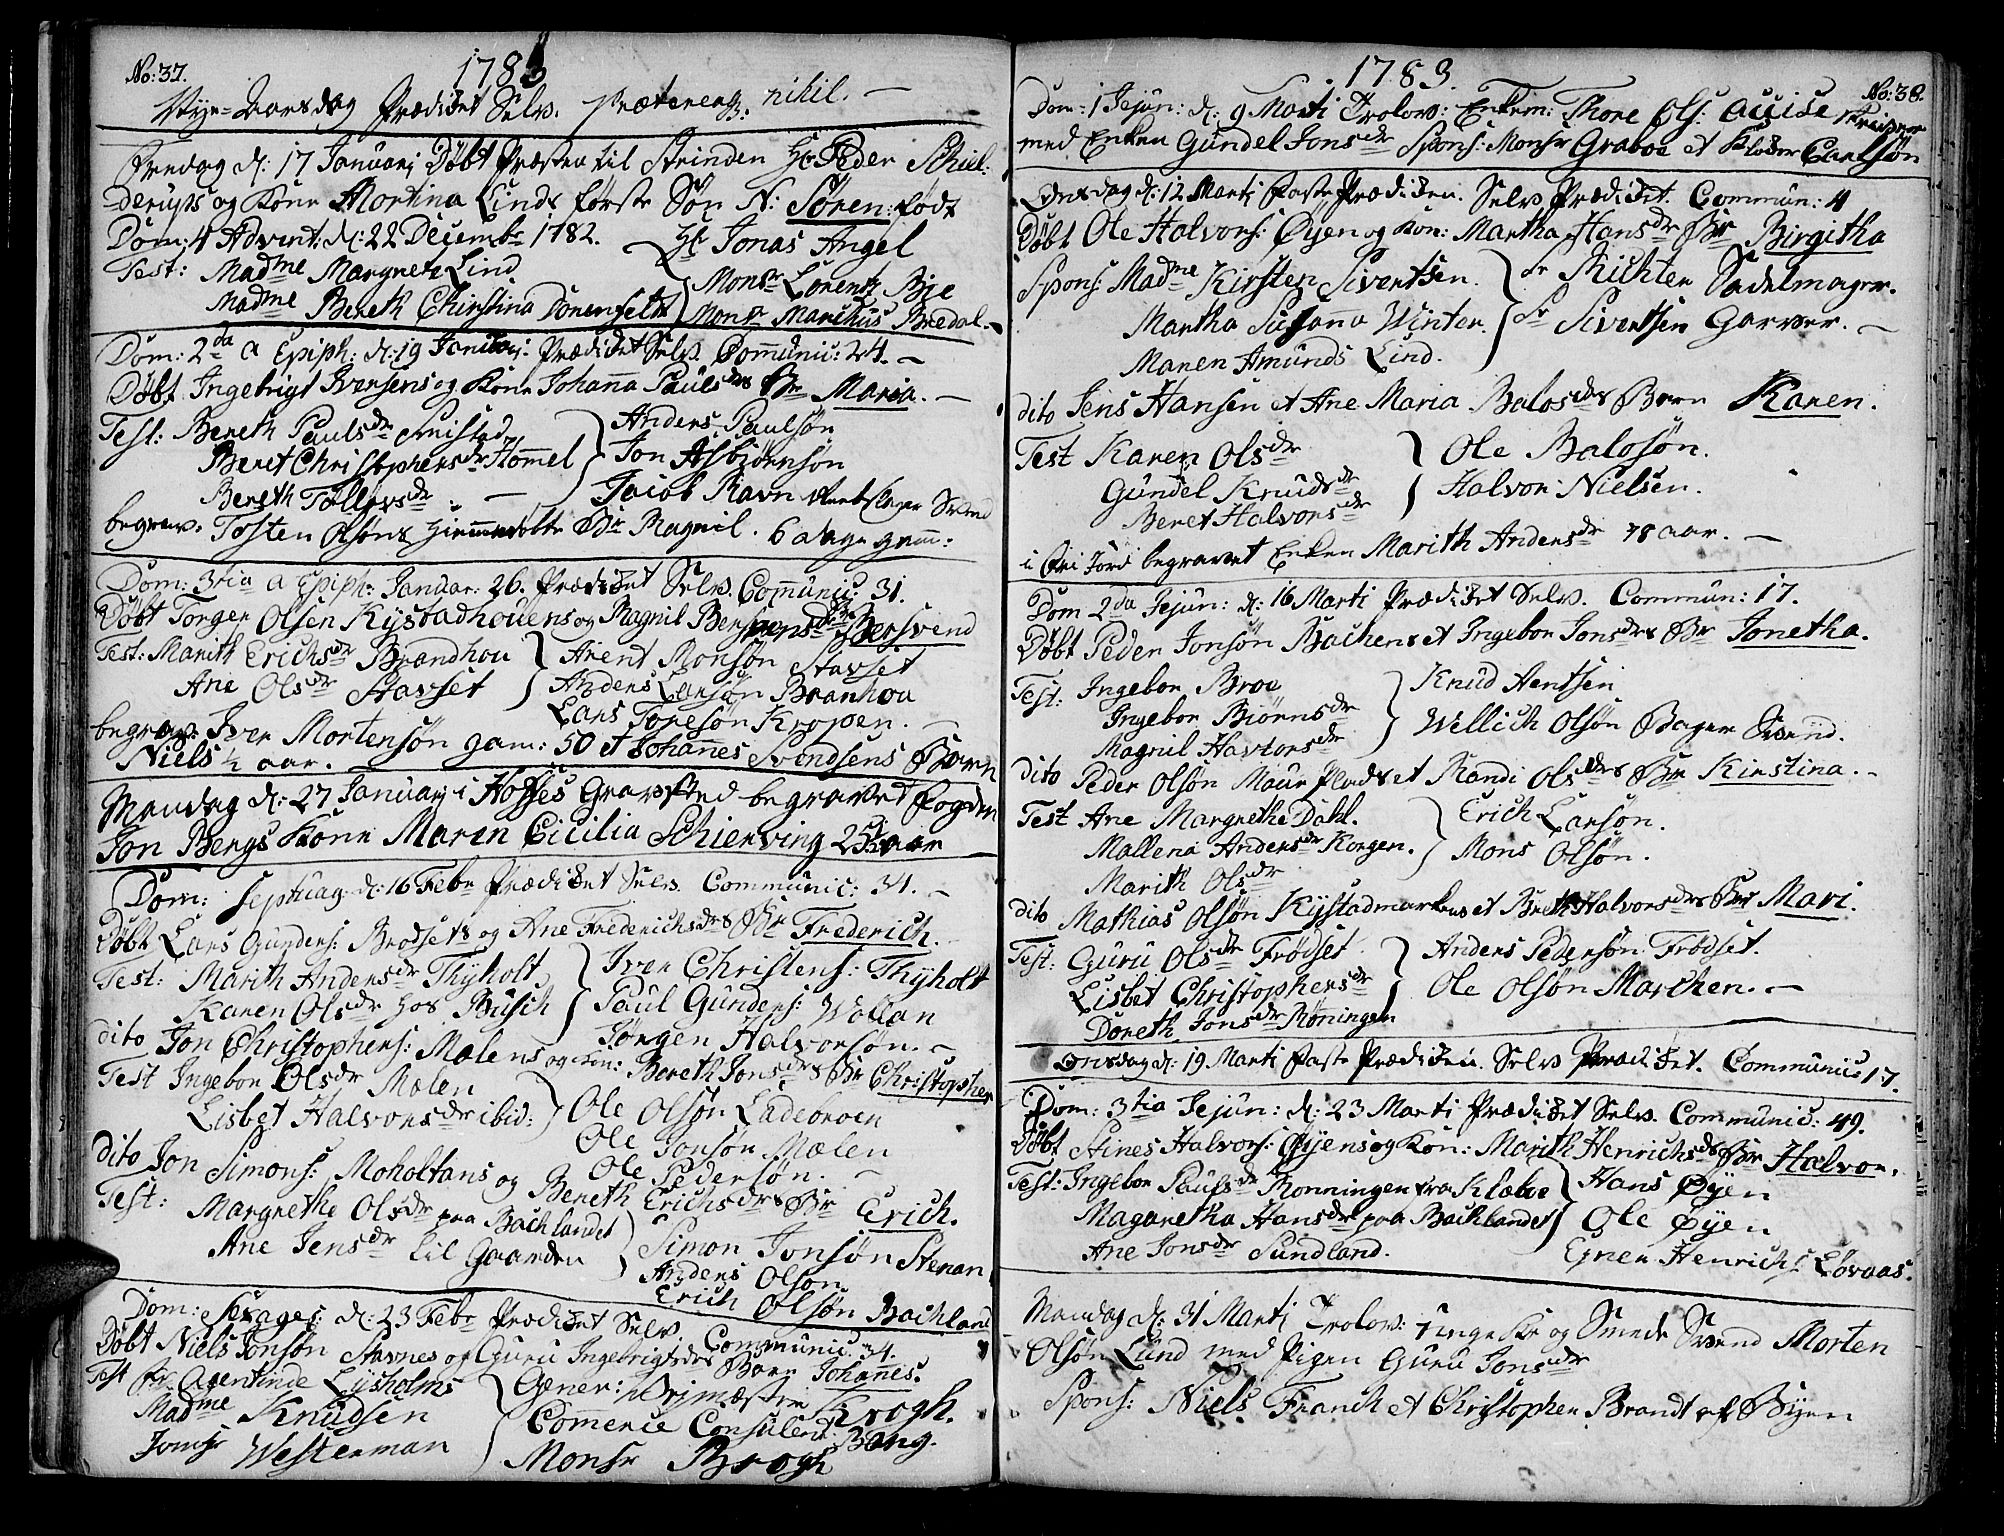 No: 37.
1783
Nye-Aarsdag Prædiket Selv. Præterea nihil. —
Fredag d: 17 Januarj Døbt Præsten til Strinden Hr Peder Schiel-
derups og Kone Mortina Linds første Søn N: Søren: født
Dom: 4 Advent: d: 22 Decembr 1782. — Hr Jonas Angel
Test: Madme Margrete Lind Monsr Lorentz Bye
Madme Bereth Christina Dorenfeldt Monsr Marchus Bredal.
Dom: 2da a Epiph: d: 19 Januarj. Prædiket Selv. Communic: 24. —
Døbt Ingebrigt Iversens og Kone Johanna Paulsdrs Br Maria. —
Test: Bereth Paulsdr Anders Paulsøn
Beret Christophersdr Hommel Jon Asbiørnsøn
Bereth Tollevsdr. — Jacob Ravn
begrav: Tosten Olsøns Br Ragnil. 6 dage gam:
Dom: 3tia a Epiph: Januar: 26. Prædiket Selv. Communic: 31.
Døbt Torger Olsen Kystadhouens og Ragnil Br Bersvend
Test: Marith Erichsdr Brandhou Arent Monsøn Stavset
Ane Olsdr Stavset Anders Larsøn Branhou
Lars Topesøn Kroppen. —
begrav: Iver Mortensøn gam: 50 et Johannes Svendsens Barn
Niels ½ aar.
Mandag d: 27 Januarj i Gravsted begravet Fogden
Jon Bergs Kone Maren Cicilia Schierving aar
Dom: Septuag. d: 16 Febr Prædiket Selv. Communic: 34. —
Døbt Lars Gunders: Brøsets og Ane Frederichsdrs Br Frederich. —
Test: Marith Andersdr Thyholt Iver Christens: Thyholt
Karen Olsdr hos Busch Paul Gunders: Wollan
Jørgen Halvorsøn. —
dito Jon Christophers: Mælens og Kon: Bereth Jonsdrs Br Christopher
Test Ingebor Olsdr Mælen Ole Olsøn Ladebroen
Lisbet Halvorsdr ibid: Ole Jonsøn Mælen
Ole Pedersøn. —
dito Jon Simons: Moholtans og Bereth Erichsdrs Br Erich.
Test: Margrethe Olsdr paa Bachlandet Simon Jonsøn Stenan
Ane Jensdr Lil Gaarden Anders Olsøn
Erich Olsøn Bachland
Dom: Sexages: d: 23 Febr Prædiket Selv. Communic: 34.
Døbt Niels Jonsøn Stavnes og Guru Ingebrigtsdrs Barn Johannes.
Test Fr Agentinde Lysholms Gener: Krogh.
Madme Knudsen Comerce Consulent Bang.
Jomfr Westerman Monsr Brogh
No: 38.
1783.
Dom: 1 Jejun: d: 9 Marti Trolov: Enkem: Thore Ols:
med Enken Gundel Jonsdr Spons: Monsr Graboe et Carlsøn
Onsdag d: 12 Marti Faste Prædiken. Selv Prædiket. Commun: 4
Døbt Ole Halvors: Øyen og Kon: Martha Hansdr Br Birgitha
Spons: Madme Kirsten Sivertsen. Sr Richter Sadelmager.
Martha Susanna Winter. Sr Sivertsen Garver. —
Maren Amunds Lind.
dito Jens Hansen et Ane Maria Balosdrs Barn Karen.
Test Karen Olsdr Ole Balosøn.
Gundel Knudsdr Halvor Nielsen.
Beret Halvorsdr
i Fri Jord begravet Enken Marith Andersdr 78 aar. —
Dom 2da Jejun: d: 16 Marti Prædiket Selv. Commun: 17.
Døbt Peder Jonsøn Bachens et Ingebor Jonsdrs Br Jonetha.
Test: Ingebor Broe Knud Aentsen
Ingebor Biørnsdr Wellich Olsøn Bager Svend.
Magnil Havtorsdr
dito Peder Olsøn Maur Plads et Randi Olsdrs Br Kirstina. —
Test Ane Margrethe Dahl. Erich Larsøn.
Mallena Andersdr Korgen. Mons Olsøn.
Marith Olsdr
dito Mathias Olsøn Kystadmarkens et Berith Halvorsdrs Br Mari.
Test: Guru Olsdr Frødset Anders Pedersøn Frødset.
Lisbet Christophersdr Ole Olsøn Marchen. —
Doreth Jonsdr Røningen
Onsdag d: 19 Marti Faste Prædiken. Selv Prædiket. Communic 17.
Dom: 3tia Jejun: d: 23 Marti Prædiket Selv. Communic: 49.
Døbt Aines Halvors: Øyens og Kon: Marith Henrichsdrs Br Halvor.
Test: Ingebor Paulsdr Ronningen fra Klæboe Hans Øyen
Magaretha Hansdr paa Bachlandet Ole Øyen
Ane Jonsdr Sundland. Henrichs: Løvaas.
Mandag d: 31 Marti Trolov: unge Kr og Smede Svend Morten
Olsøn Lund med Pigen Guru Jonsdr
Spons: Niels Franch et Christopher Brandt af Byen